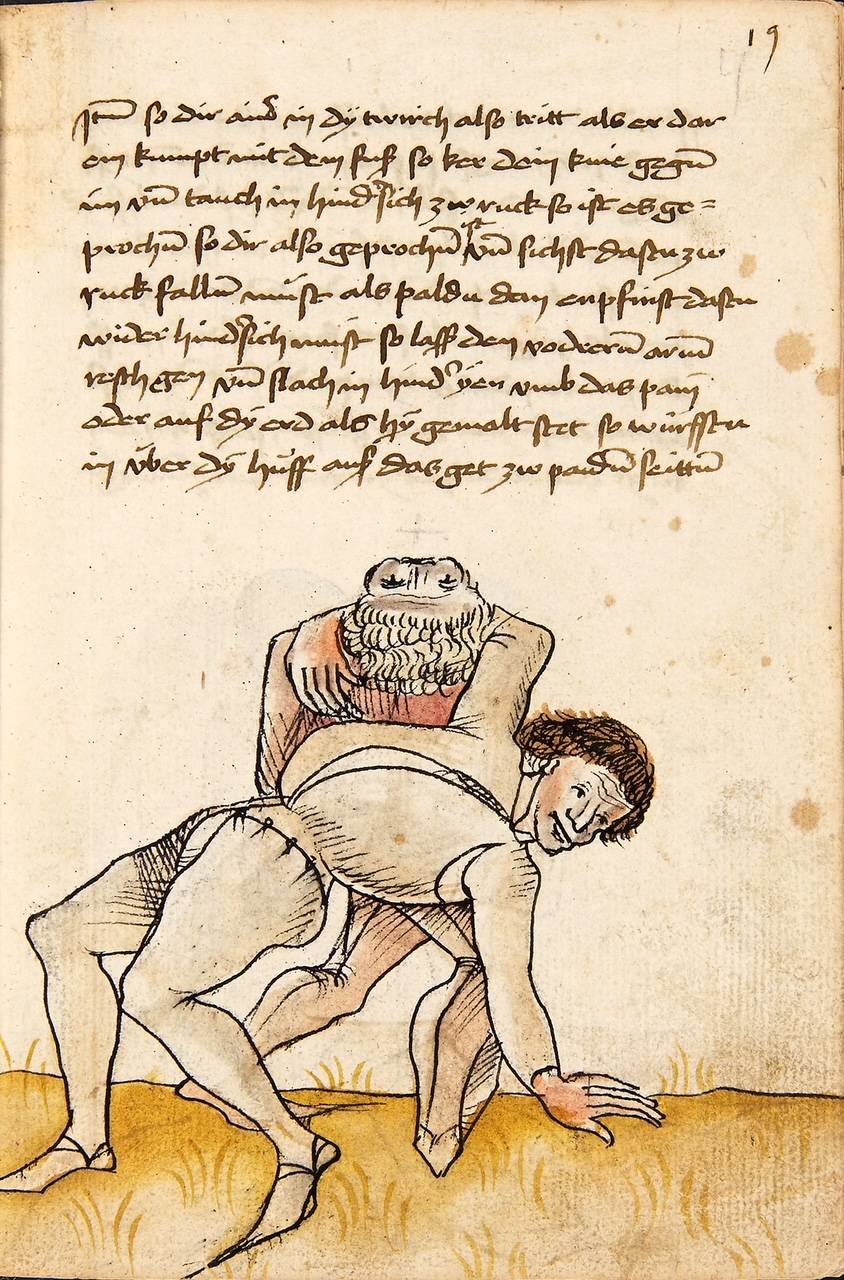 19
Itm̄ so dir ainͦ in dy twirch also tritt als er dar
ein kumpt mit dem fuſ so ker dein knie gegn̄
im vn̄ tauch in hindͦsich zw ruck so ist es ge=
prochn̄ so dir also geprochn̄ ist vn̄ sichst dastu zw
ruck falln̄ must als paldu dan enpfinst dastu
wider hindͦsich must so laſſ den vodrern̄ arm̄
resch gen vn̄ slach in hindͦ yen vmb das pain
oder auf dy erd als hy gemalt stet so würffstu
in über dy hüff auſ das get zw paidn̄ seittn̄